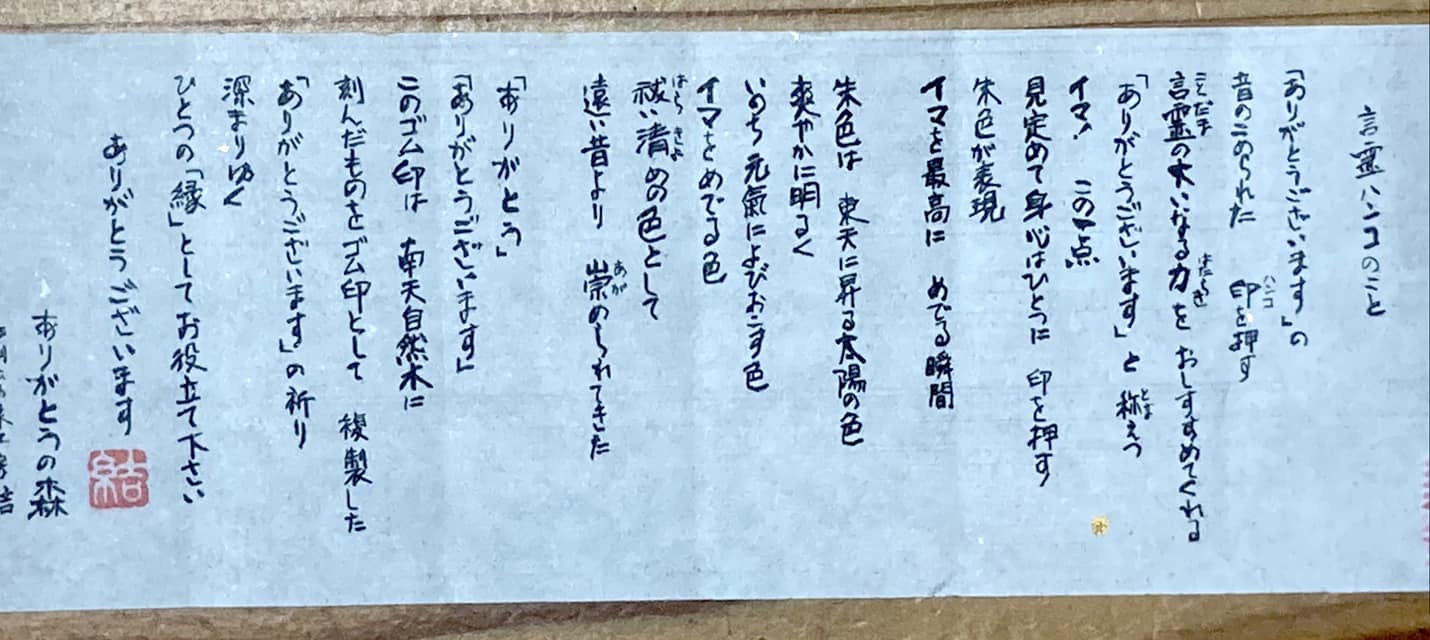 言霊ハンコのこと
「ありがとうございます」の
音のこめられた 印を押す
言霊の大いなる力を おしすすめてくれる
「ありがとうございます」と 称えつ
イマ! この一点
見定めて身心はひとつに 印を押す
朱色が表現
イマを最高に めでる瞬間
朱色は 東天に昇る太陽の色
爽やかに明るく
いのち元氣によびおこす色
イマをめでる色
祓い清めの色として
遠い昔より 崇められてきた
「ありがとう」
「ありがとうございます」
このゴム印は 南天自然木に
刻んだものをゴム印として 複製した
「ありがとうございます」の祈り
深まりゆく
ひとつの「縁」としてお役立て下さい
ありがとうございます
結
ありがとうの森